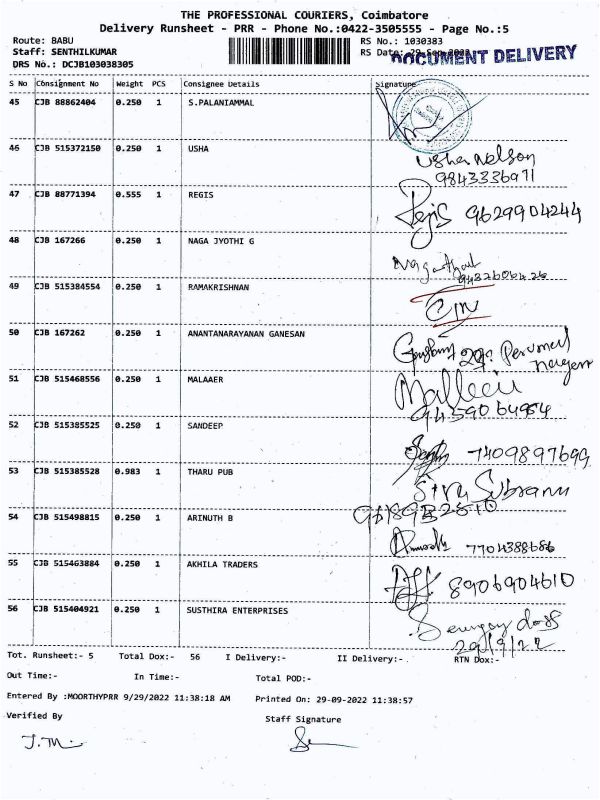 THE PROFESSIONAL COURIERS, Coimbatore
Delivery Runsheet - PRR - Phone No.:0422-3505555 - Page No.:5
Route: BABU RS No.: 1030383
Staff: SENTHILKUMAR RS Date: 29-Sep-2022 DOCUMENT DELIVERY
DRS No.: DCJB103038305
S No Consignment No Weight PCS Consignee Details Signature
45 CJB 88862404 0.250 1 S.PALANIAMMAL
46 CJB 515372150 0.250 1 USHA
Usha Nelson
9843336971
47 CJB 88771394 0.555 1 REGIS
Regis 9629904244
48 CJB 167266 0.250 1 NAGA JYOTHI G
49 CJB 515384554 0.250 1 RAMAKRISHNAN
50 CJB 167262 0.250 1 ANANTANARAYANAN GANESAN
51 CJB 515468556 0.250 1 MALAAER
52 CJB 515385525 0.250 1 SANDEEP
7409897699
53 CJB 515385528 0.983 1 THARU PUB
54 CJB 515498815 0.250 1 ARINUTH B
7704388686
55 CJB 515463884 0.250 1 AKHILA TRADERS
8906904610
56 CJB 515404921 0.250 1 SUSTHIRA ENTERPRISES
29/9/22
Tot. Runsheet:- 5 Total Dox:- 56 I Delivery:- II Delivery:- RTN Dox:-
Out Time:- In Time:- Total POD:-
Entered By :MOORTHYPRR 9/29/2022 11:38:18 AM Printed On: 29-09-2022 11:38:57
Verified By Staff Signature